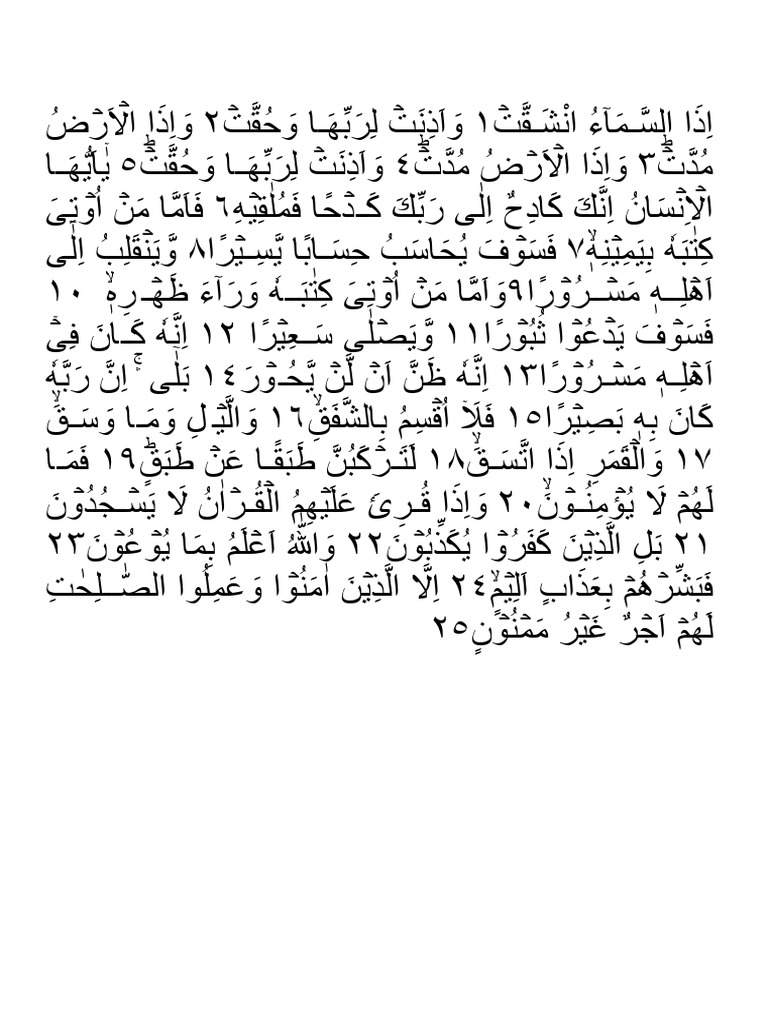 اِذَا السَّـمَآءُ انْشَـقَّتْ١ وَاَذِنَتْ لِرَبِّهَـا وَحُقَّتْ٢ وَاِذَا الْاَرْضُ
مُدَّتْؕ٣ وَاِذَا الْاَرْضُ مُدَّتْؕ٤ وَاَذِنَتْ لِرَبِّهَـا وَحُقَّتْؕ٥ يٰۤاَيُّهَـا
الْاِنْسَانُ اِنَّكَ كَادِحٌ اِلٰى رَبِّكَ كَـدْحًا فَمُلٰقِيْهِ٦ فَاَمَّا مَنْ اُوْتِىَ
كِتٰبَهٗ بِيَمِيْنِهٖۙ٧ فَسَوْفَ يُحَاسَبُ حِسَـابًا يَّسِـيْرًا٨ وَّيَنْقَلِبُ اِلٰٓى
اَهْلِـهٖ مَسْـرُوْرًا٩وَاَمَّا مَنْ اُوْتِىَ كِتٰبَـهٗ وَرَآءَ ظَهْـرِهٖۙ ١٠
فَسَوْفَ يَدْعُوْا ثُبُوْرًا١١ وَّيَصْلٰى سَـعِيْرًا ١٢ اِنَّهٗ كَـانَ فِىْۤ
اَهْلِـهٖ مَسْـرُوْرًا١٣ اِنَّهٗ ظَنَّ اَنْ لَّنْ يَّحُـوْرَ١٤ بَلٰٓى ۛۚ اِنَّ رَبَّهٗ
كَانَ بِهٖ بَصِيْرًا١٥ فَلَاۤ اُقْسِمُ بِالشَّفَقِۙ١٦ وَالَّيْـلِ وَمَـا وَسَـقَۙ
١٧ وَالْقَمَرِ اِذَا اتَّسَـقَۙ١٨ لَتَـرْكَبُنَّ طَبَقًـا عَنْ طَبَقٍؕ١٩ فَمَـا
لَهُمْ لَا يُؤْمِنُـوْنَۙ٢٠ وَاِذَا قُـرِئَ عَلَيْهِمُ الْقُـرْاٰنُ لَا يَسْـجُدُوْنَ
٢١ بَلِ الَّذِيْنَ كَفَرُوْا يُكَذِّبُوْنَ٢٢ وَاللّٰهُ اَعْلَمُ بِمَا يُوْعُوْنَ٢٣
فَبَشِّرْهُمْ بِعَذَابٍ اَلِيْمٍۙ٢٤ اِلَّا الَّذِيْنَ اٰمَنُوْا وَعَمِلُوا الصّٰـلِحٰتِ
لَهُمْ اَجْرٌ غَيْرُ مَمْنُوْنٍ٢٥